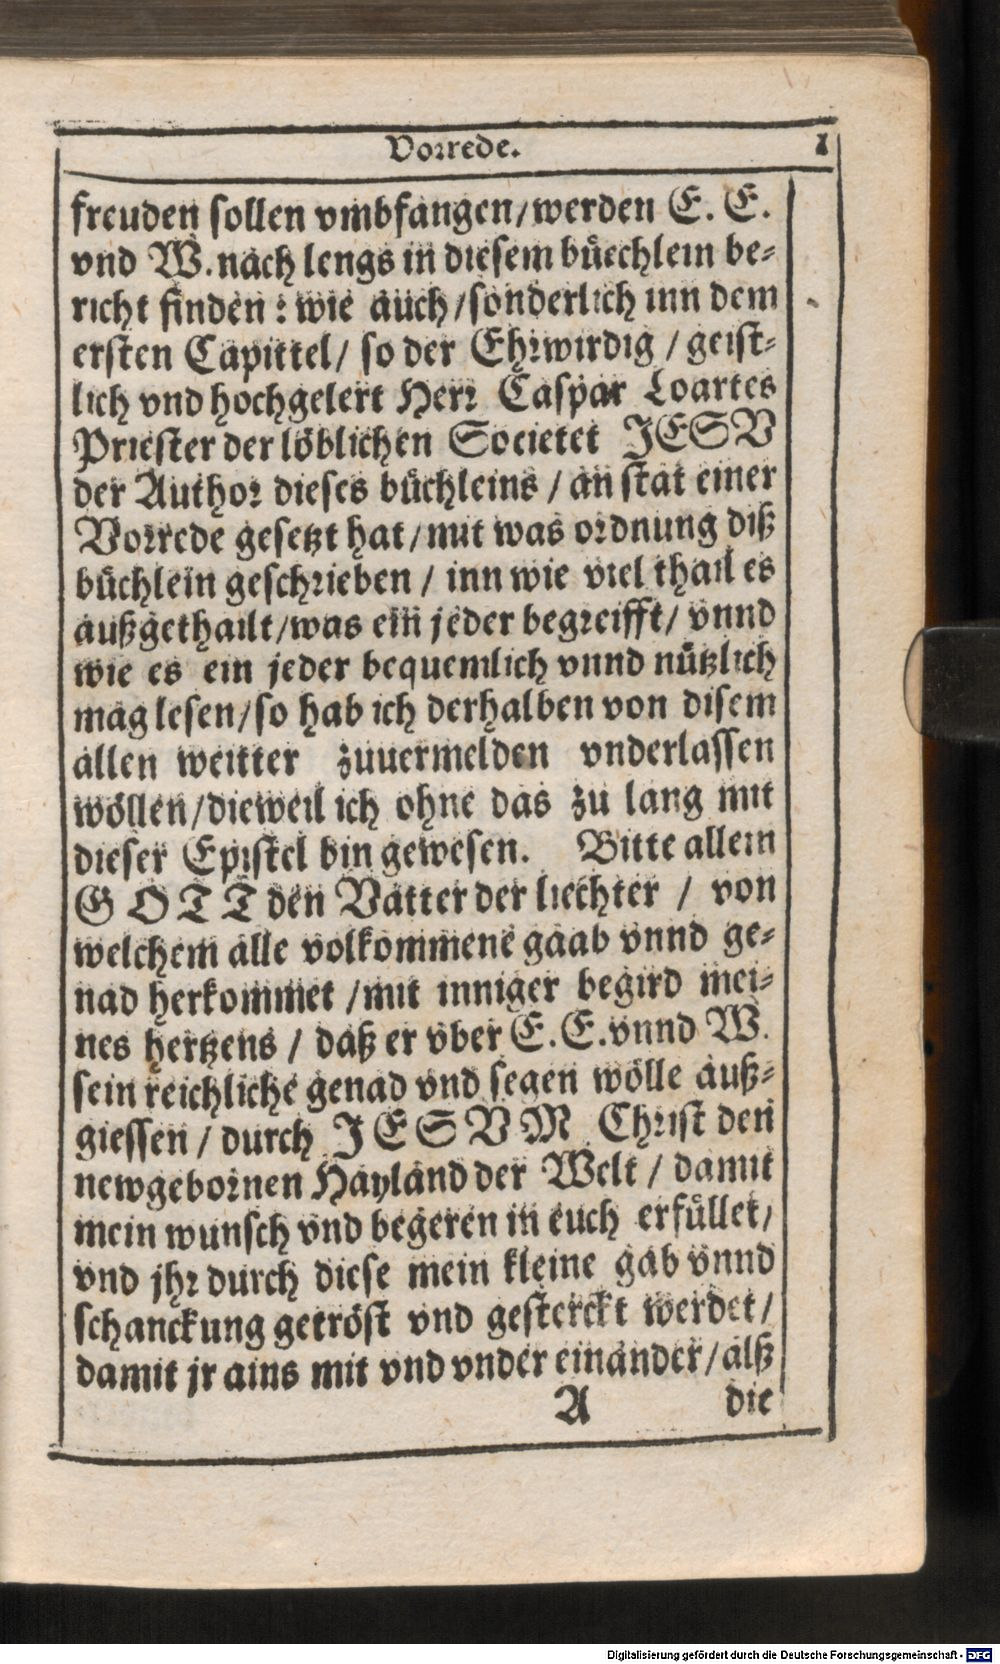 Vorrede. 1
freuden sollen vmbfangen/werden E. E.
vnd W. nach lengs in diesem büechlein be-
richt finden: wie auch/sonderlich inn dem
ersten Capittel/ so der Ehrwirdig / geist-
lich vnd hochgelert Herr Caspar Loartes
Priester der löblichen Societet JESV
der Author dieses büchleins / an stat einer
Vorrede gesetzt hat/mit was ordnung diß
büchlein geschrieben / inn wie viel thail es
außgethailt/was ein jeder begreifft/ vnnd
wie es ein jeder bequemlich vnnd nützlich
mag lesen/so hab ich derhalben von disem
allen weitter zuuermelden vnderlassen
wöllen/dieweil ich ohne das zu lang mit
dieser Epistel bin gewesen. Bitte allein
GOTT den Vatter der liechter / von
welchem alle volkommene gaab vnnd ge-
nad herkommet /mit inniger begird mei-
nes hertzens / daß er vber E. E. vnnd W.
sein reichliche genad vnd segen wölle auß-
giessen / durch JESVM Christ den
newgebornen Hayland der Welt / damit
mein wunsch vnd begeren in euch erfüllet/
vnd jhr durch diese mein kleine gab vnnd
schanckung getröst vnd gesterckt werdet/
damit jr ains mit vnd vnder einander/alß
A die
Digitalisierung gefördert durch die Deutsche Forschungsgemeinschaft - DFG